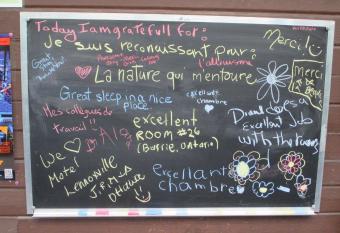 Today I am gratefull for:
Je suis reconnaissant pour:
Merci!
l'altruisme
La nature qui m'entoure
Merci
Great sleep in a nice
place
excellente
chambre
Mes collègues de
travail!!
excellent
ROOM #26
(Barrie, Ontario)
Diand does a
Excellent Job
with the rooms
We
Motel
Lennoxville
J.P.M
Ottawa
Excellante
chambre